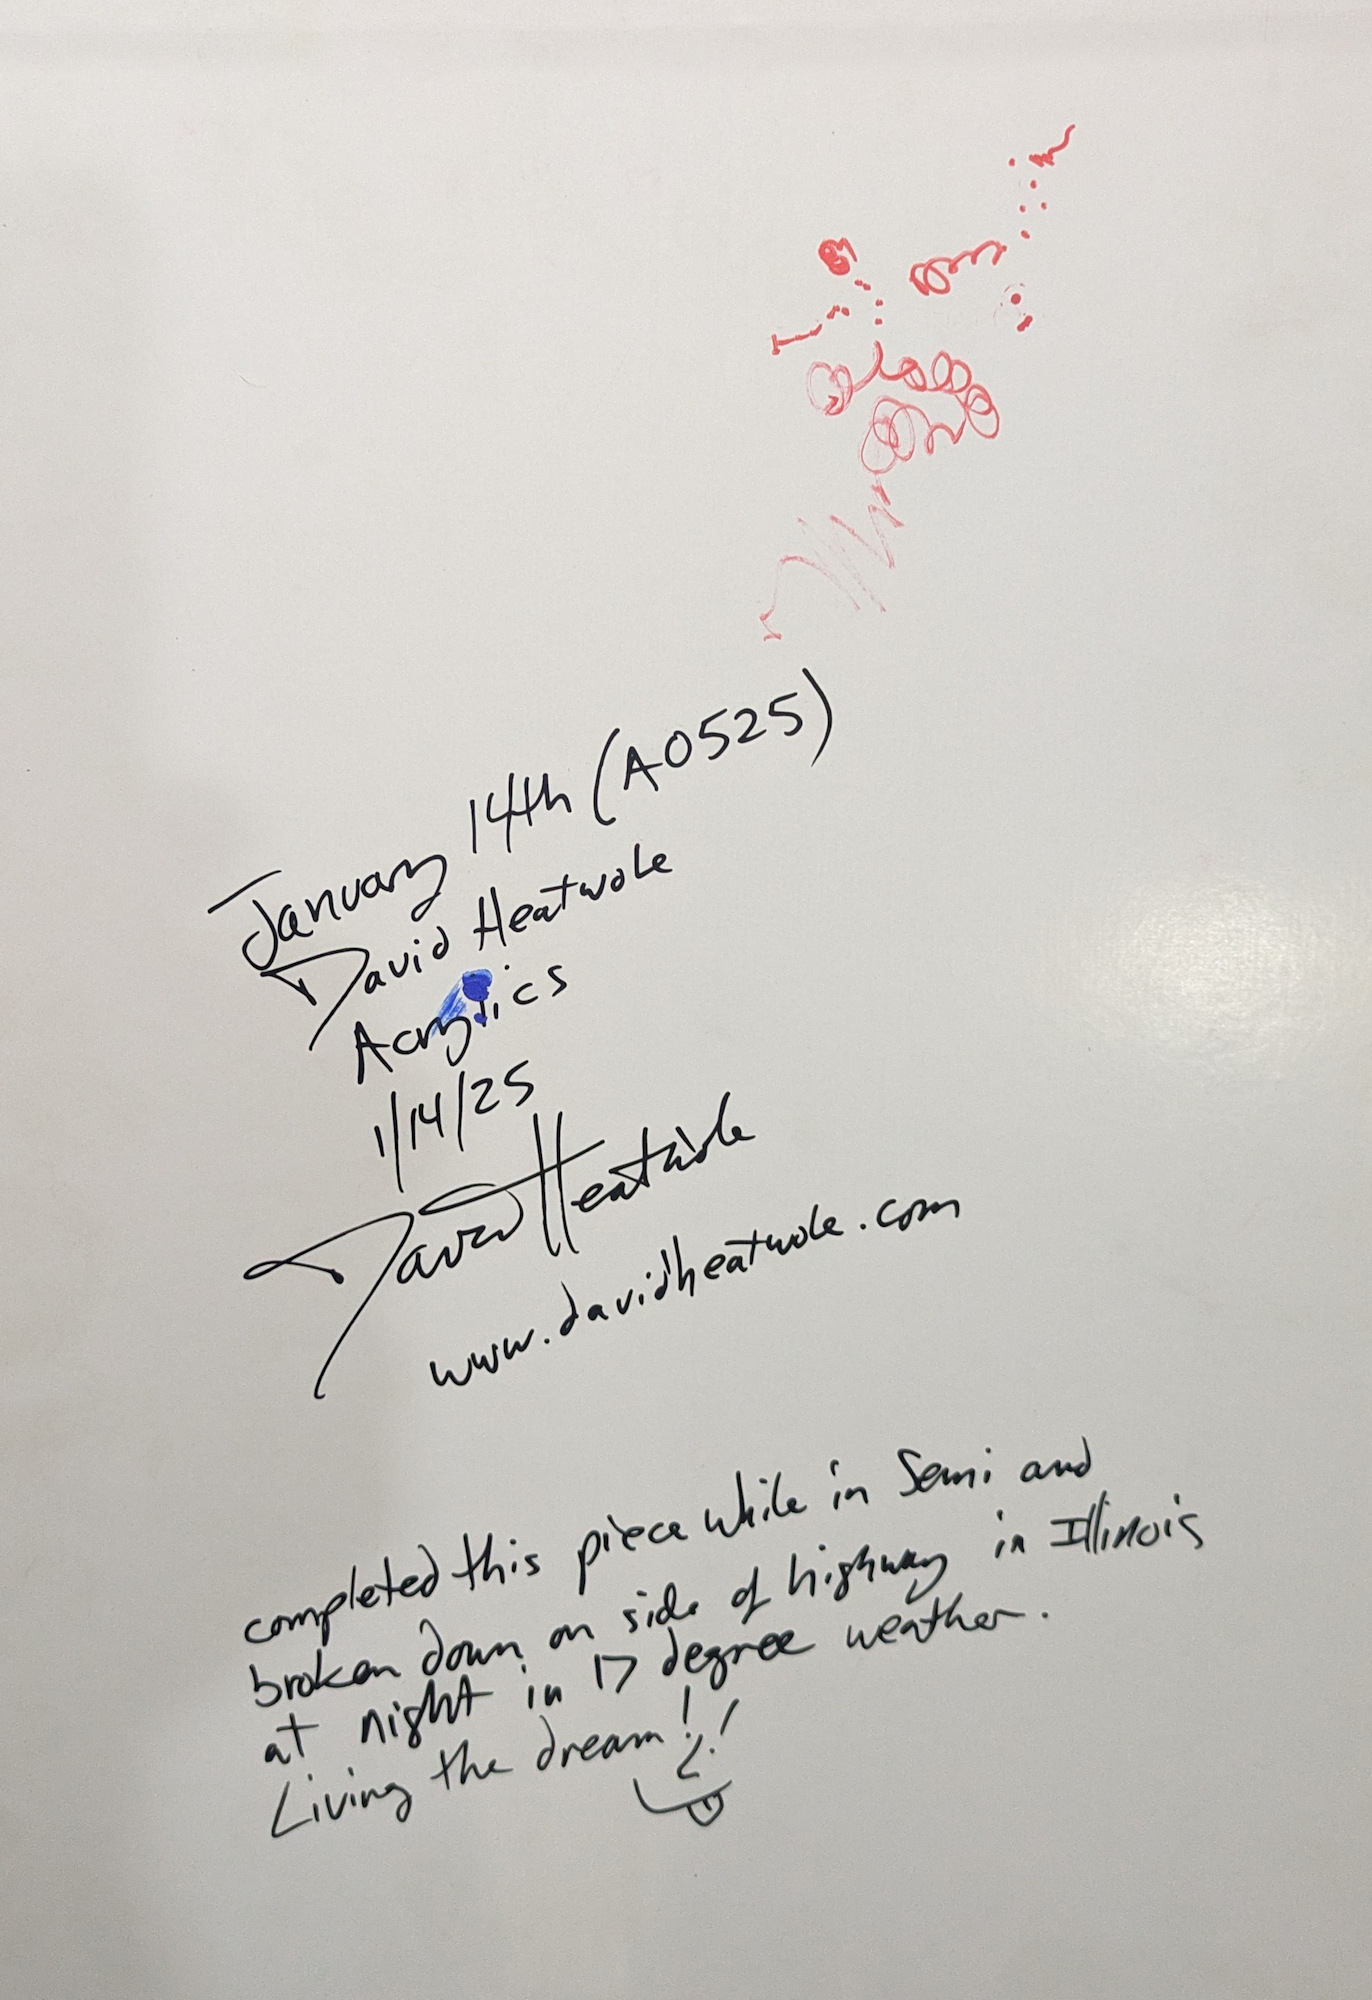 January 14th (A0525)
David Heatwole
Acrylics
1/14/25
David Heatwole
www.davidheatwole.com
completed this piece while in Semi and
broken down on side of highway in Illinois
at night in 17 degree weather.
Living the dream!!